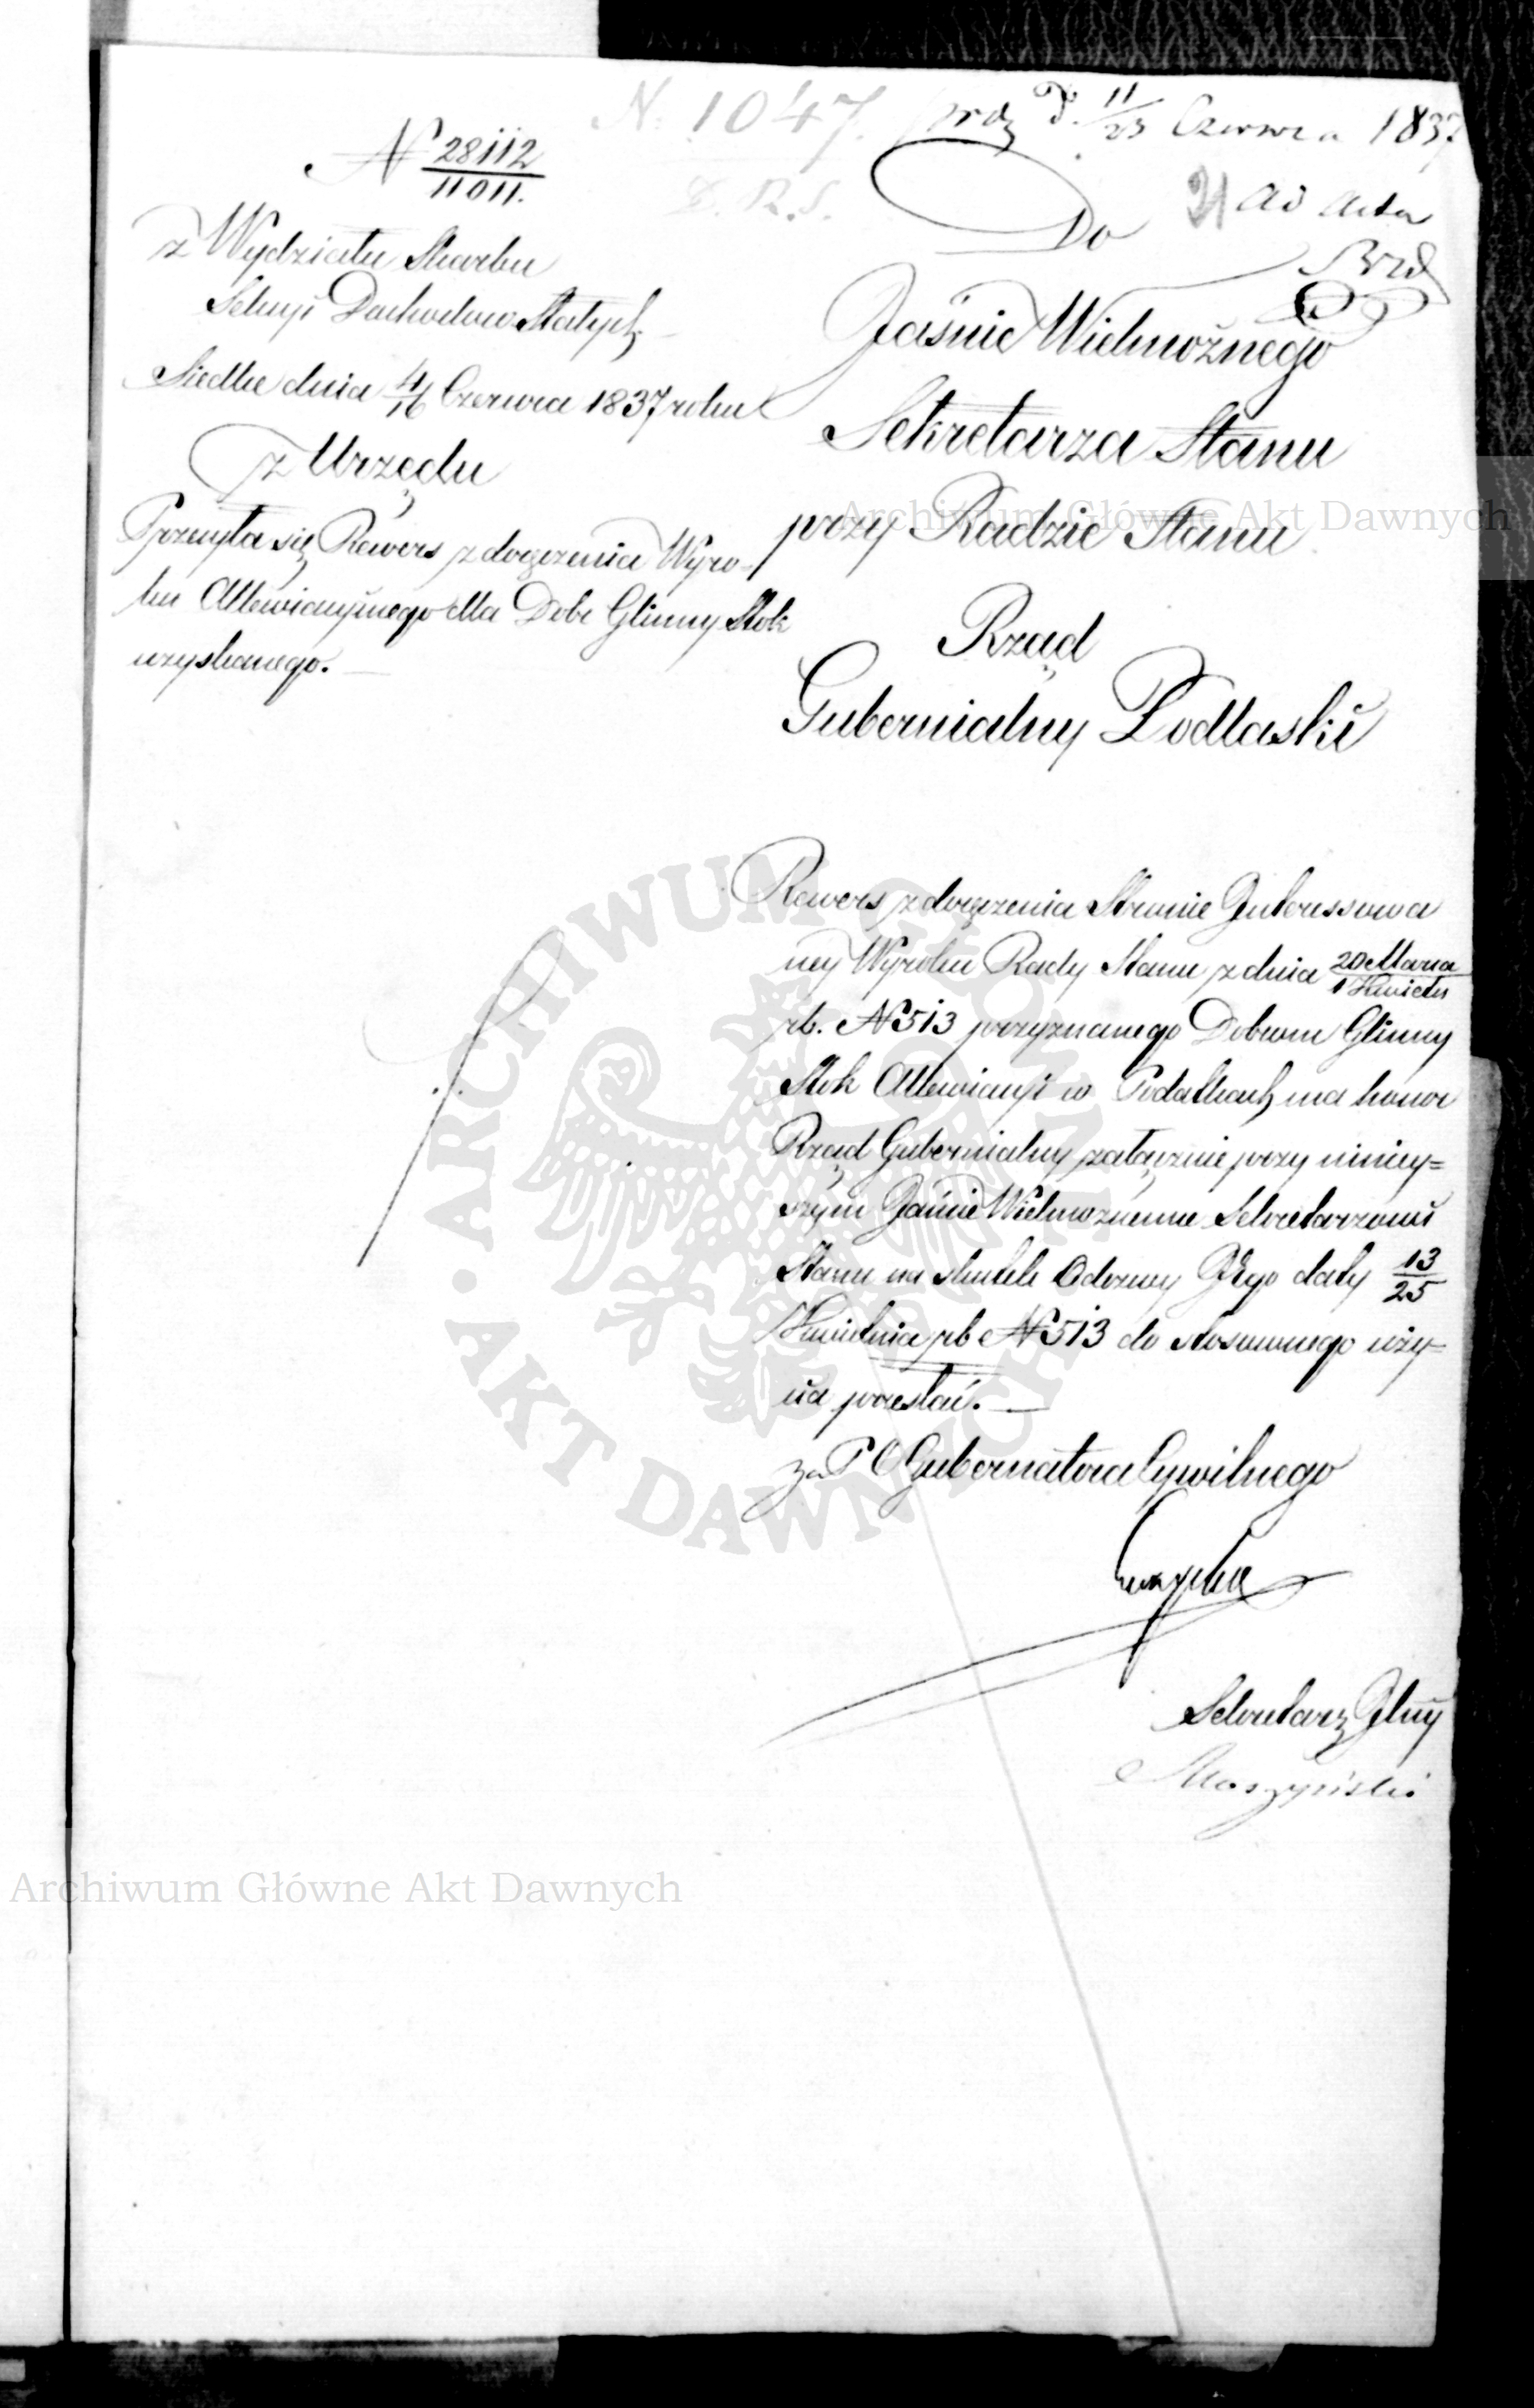 N. 1047. prdz D. 11/23 Czerwca 1837
D.R.S.
21 ad acta
N 28112/11011.
z Wydziału Skarbu
Sekcyi Dochodow Stałych
Siedlce dnia 4/16 Czerwca 1837 roku
z Urzędu
Przesyła się Rewers z doręczenia Wyro-
ku Allewiacyinego dla Dobr Glinny Stok
uzyskanego.
Do
Jaśnie Wielmożnego
Sekretarza Stanu
przy Radzie Stanu
Rząd
Gubernialny Podlaski
Rewers z doręczenia Stronie Interessowa
ney Wyroku Rady Stanu z dnia 20 Marca/1 Kwietn
rb. N 513 przyznanego Dobrom Glinny
Stok Allewiacyi w Podatkach ma honor
Rząd Gubernialny załącznie przy niniey=
szym Jaśnie Wielmożnemu Sekretarzowi
Stanu na skutek Odezwy Jego daty 13/25
Kwietnia rb N 513 do stosownego uży=
cia przesłać.
za P O Gubernatora Cywilnego
Sekretarz Jlny
Archiwum Główne Akt Dawnych
Archiwum Główne Akt Dawnych
ARCHIWUM GŁÓWNE AKT DAWNYCH